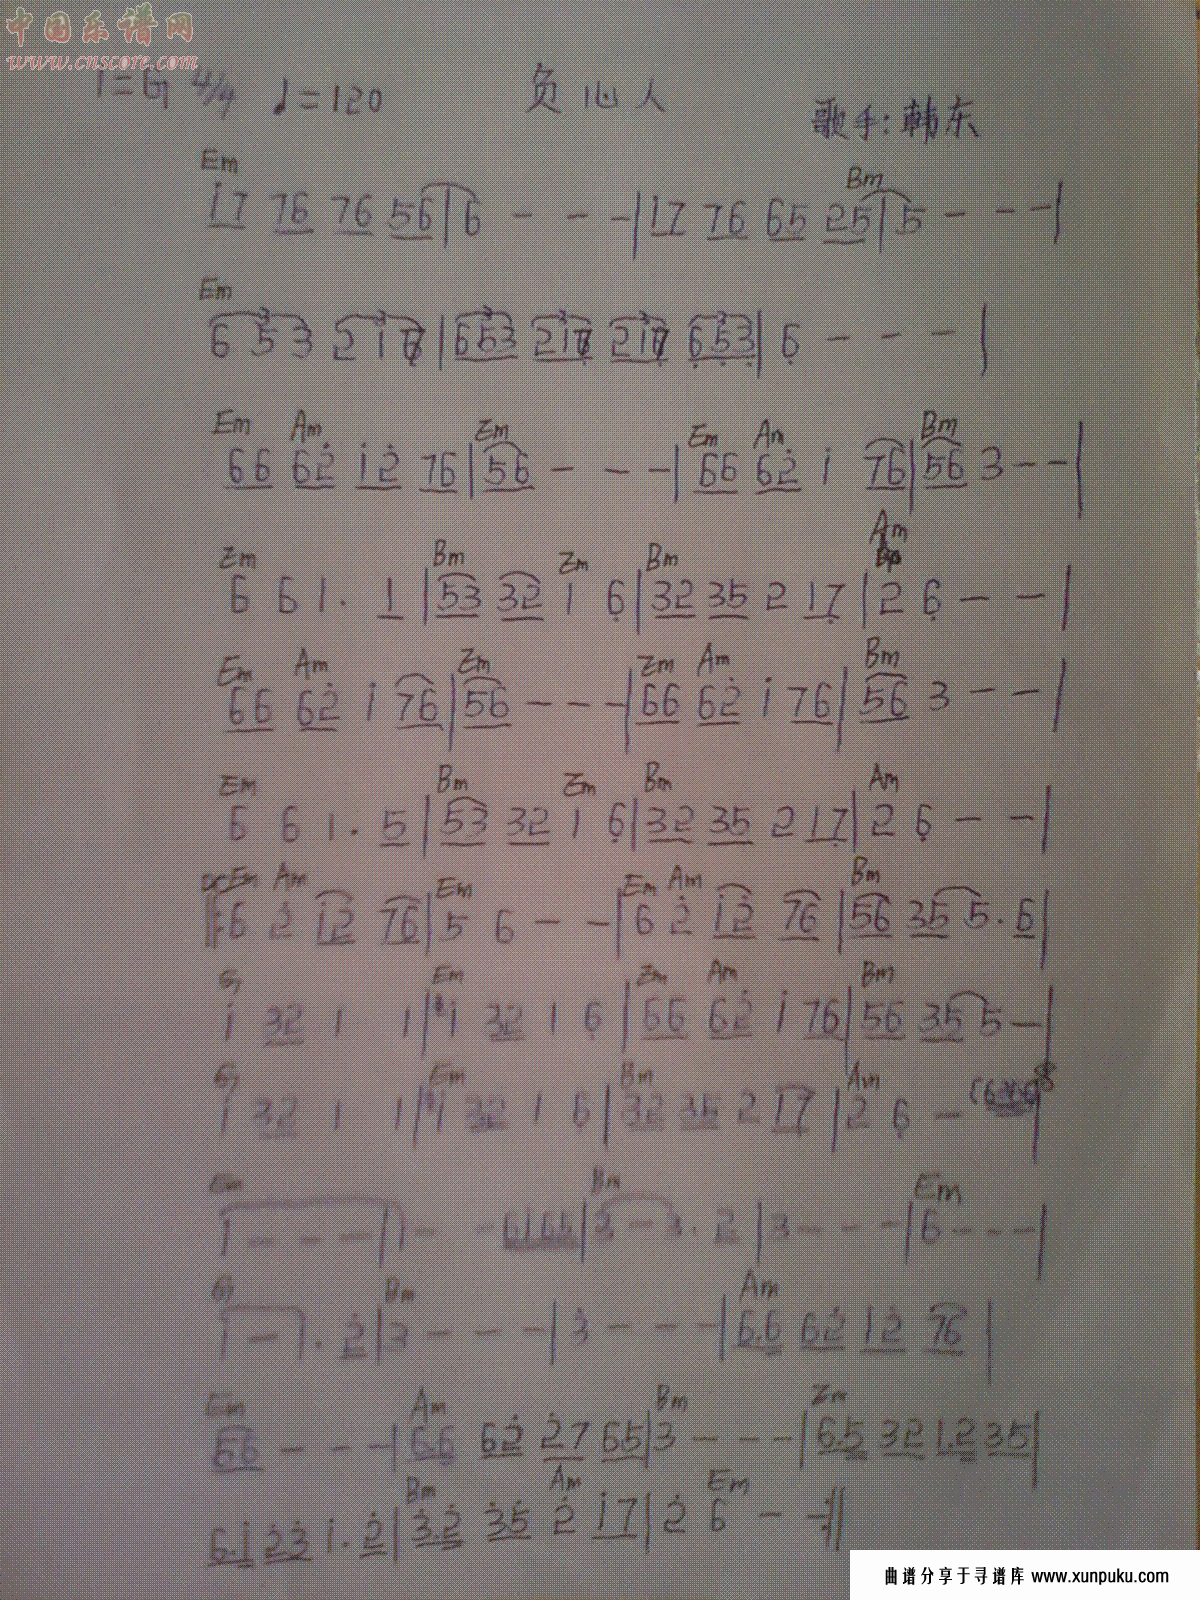 中国乐谱网
www.cnscore.com
1=G 4/4 ♩=120 负心人
歌手:韩东
Em Bm
i7 76 76 56 | 6 - - - | 17 76 65 25 | 5 - - - |
Em
6 5 3 2 1 7 | 653 217 217 653 | 6 - - - |
Em Am Em Em Am Bm
66 62 i 2 76 | 56 - - - | 66 62 i 76 | 56 3 - - |
Em Bm Em Bm Am
6 6 1. 1 | 53 32 1 6 | 32 35 2 17 | 2 6 - - |
Em Am Em Em Am Bm
66 62 i 76 | 56 - - - | 66 62 i 76 | 56 3 - - |
Em Bm Em Bm Am
6 6 1. 5 | 53 32 1 6 | 32 35 2 17 | 2 6 - - |
Em Am Em Em Am Bm
6 2 i2 76 | 5 6 - - | 6 2 i2 76 | 56 35 5. 6 |
G Em Em Am Bm
i 32 1 1 | 1 32 1 6 | 66 62 i 76 | 56 35 5 - |
G Em Bm Am
i 32 1 1 | 1 32 1 6 | 32 35 2 17 | 2 6 -
Em Bm Em
1 - - - | 1 - - | 3 - 3. 2 | 3 - - - | 6 - - - |
G Bm Am
1 - 1. 2 | 3 - - - | 3 - - - | 6.6 62 12 76 |
Em Am Bm Em
56 - - - | 6.6 62 27 65 | 3 - - - | 6.5 32 1.2 35 |
Bm Am Em
6.1 23 1. 2 | 3.2 35 2 17 | 2 6 - - :||
曲谱分享于寻谱库 www.xunpuku.com